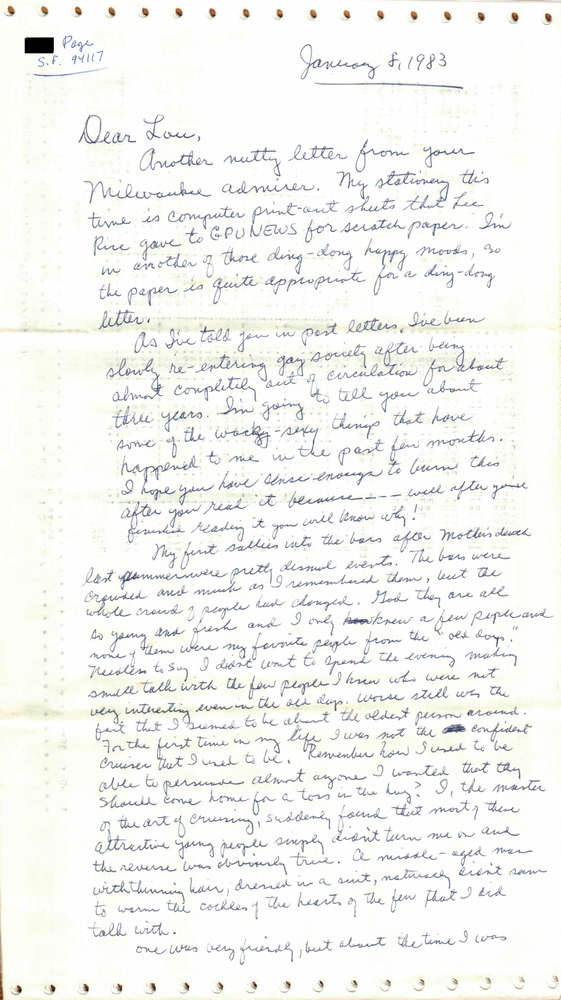 Page
S.F. 94117
January 8, 1983
Dear Lou,
Another nutty letter from your
Milwaukee admirer. My stationery this
time is computer print-out sheets that Lee
Rice gave to GPU NEWS for scratch paper. I'm
in another of those ding-dong happy moods, so
the paper is quite appropriate for a ding-dong
letter.
As I've told you in past letters, I've been
slowly re-entering gay society after being
almost completely out of circulation for about
three years. I'm going to tell you about
some of the wacky-sexy things that have
happened to me in the past few months.
I hope you have sense enough to burn this
after you read it because --- well after you've
finished reading it you will know why!
My first sallies into the bars after Mother's death
last summer were pretty dismal events. The bars were
crowded and much as I remembered them, but the
whole crowd of people had changed. God they are all
so young and fresh and I only knew a few people and
none of them were my favorite people from the "old days."
Needless to say I didn't want to spend the evening making
small talk with the few people I knew who were not
very interesting even in the old days. Worse still was the
fact that I seemed to be about the oldest person around.
For the first time in my life I was not the confident
cruiser that I used to be. Remember how I used to be
able to persuade almost anyone I wanted that they
should come home for a toss in the hay? I, the master
of the art of cruising, suddenly found that most of these
attractive young people simply didn't turn me on and
the reverse was obviously true. A middle-aged man
with thinning hair, dressed in a suit, naturally didn't seem
to warm the cockles of the hearts of the few that I did
talk with.
One was very friendly, but about the time I was